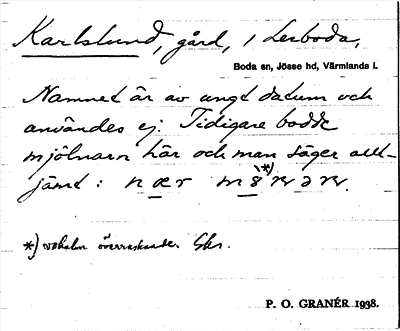 Karlslund, gård, i Lerboda,
Boda sn, Jösse hd, Värmlands l.
Namnet är av ungt datum och
användes ej. Tidigare bodde
mjölnarn här och man säger allt-
jämt: n æ r m
*) vokalen överraskande.
P. O. GRANÉR 1938.